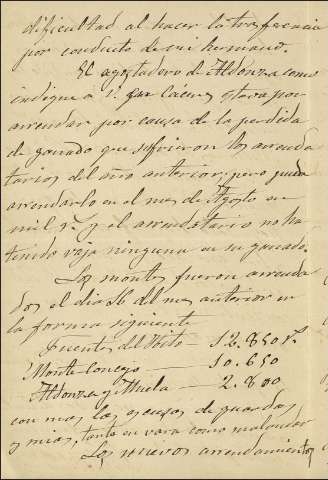 dificultad al hacer la trasferencia
por conducto de mi hermano.
El agostadero de Aldonza como
indique a V. Cáceres estava por
arrendar por causa de la perdida
de ganado que sufrieron los arrenda
tarios del año anterior, pero pude
arrendarlo en el mes de Agosto en
mil r.s y el arrendatario no ha
tenido vaja ninguna en su ganado.
Los montes fueron arrenda
dos el dia 26 del mes anterior en
la forma siguiente
Fuente del 12.850 r.s
Monte Concejo — 10.650
Aldonza y Muela — 2.800
con mas los escusos de guardas
y mios, tanto en vara como
Los nuevos arrendamientos